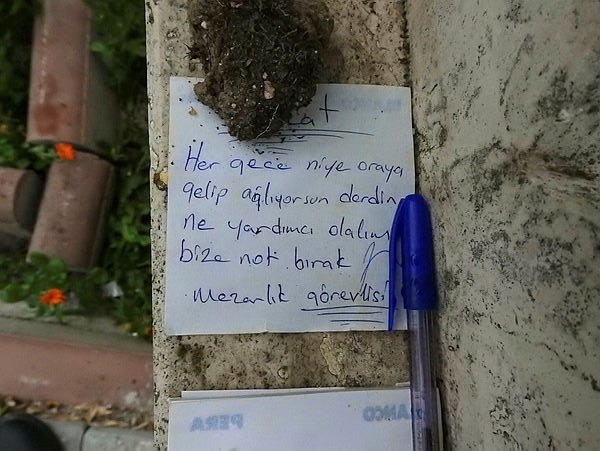 Her gece niye oraya
gelip ağlıyorsun derdin
ne yardımcı olalım
bize not bırak
Mezarlık görevlisi
PERA BLANCO